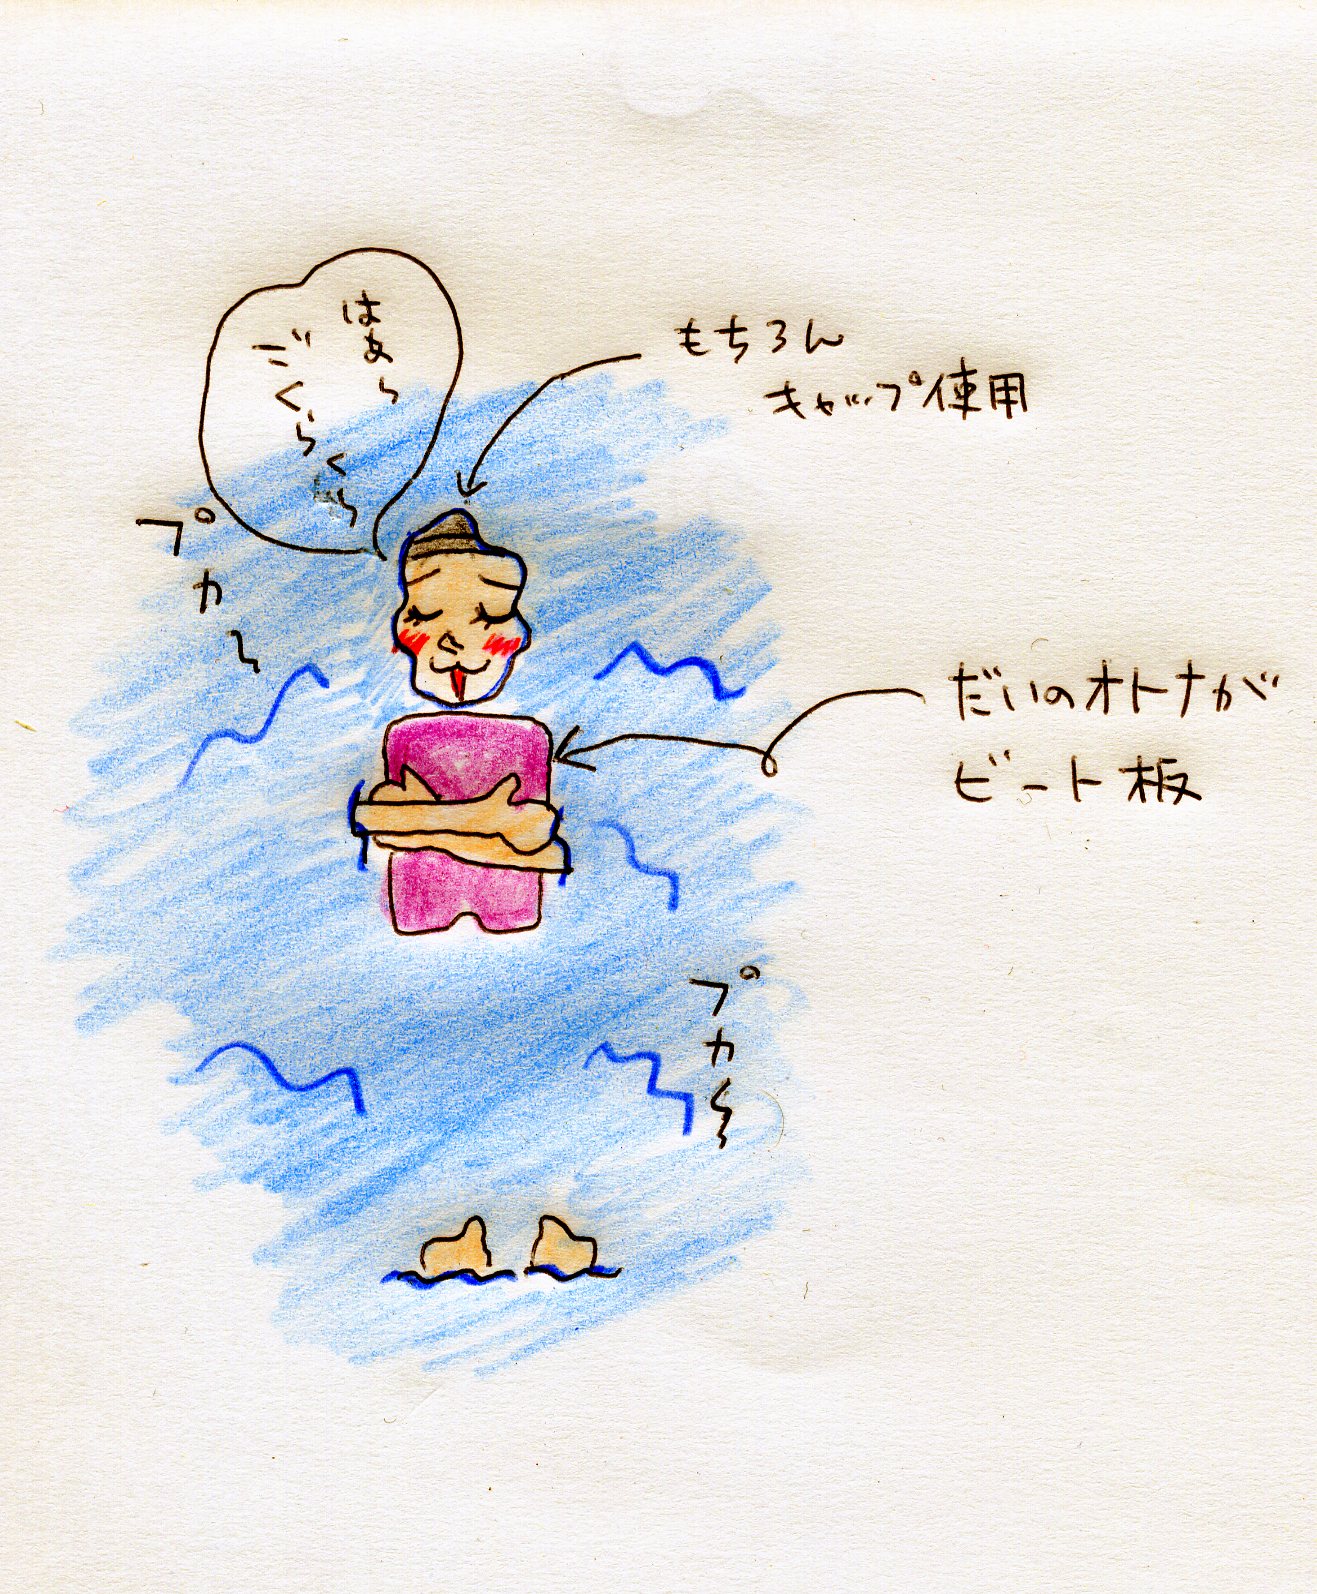 はあ〜
ごくらく〜
もちろん
キャップ使用
プカ〜
だいのオトナが
ビート板
プカ〜